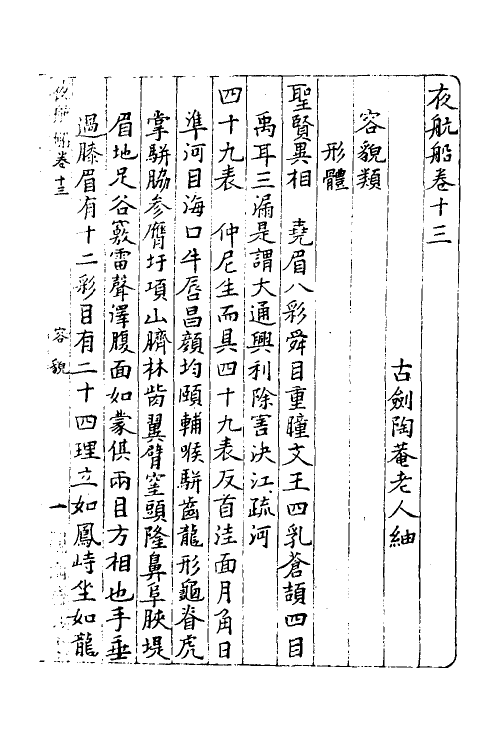 夜航船卷十三
古劍陶菴老人紬
容貌類
形體
聖賢異相　堯眉八彩舜目重瞳文王四乳蒼頡四目
禹耳三漏是謂大通興利除害決江疏河
四十九表　仲尼生而具四十九表反首洼面月角日
準河目海口牛唇昌顔均頤輔喉駢齒龍形龜脊虎
掌駢脇參膺圩項山臍林背翼臂窐頭隆鼻阜脥堤
眉地足谷竅雷聲澤腹面如蒙倛兩目方相也手垂
過膝眉有十二彩目有二十四理立如鳳峙坐如龍
卷十三
容貌
一